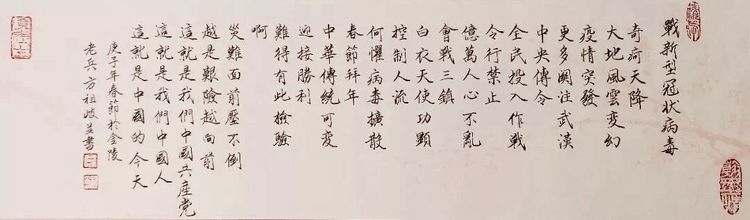 戰新型冠狀病毒
奇疴天降
大地風雲變幻
疫情突發
更多關注武漢
中央傳令
全民投入作戰
令行禁止
億萬人心不亂
會戰三鎮
白衣天使功顯
控制人流
何懼病毒擴散
春節拜年
中華傳統可變
迎接勝利
難得有此檢驗
啊
災難面前壓不倒
越是艱險越向前
這就是我們中國共產党
這就是我們中國人
這就是中國的今天
庚子年春節於金陵
老兵方祖岐並書